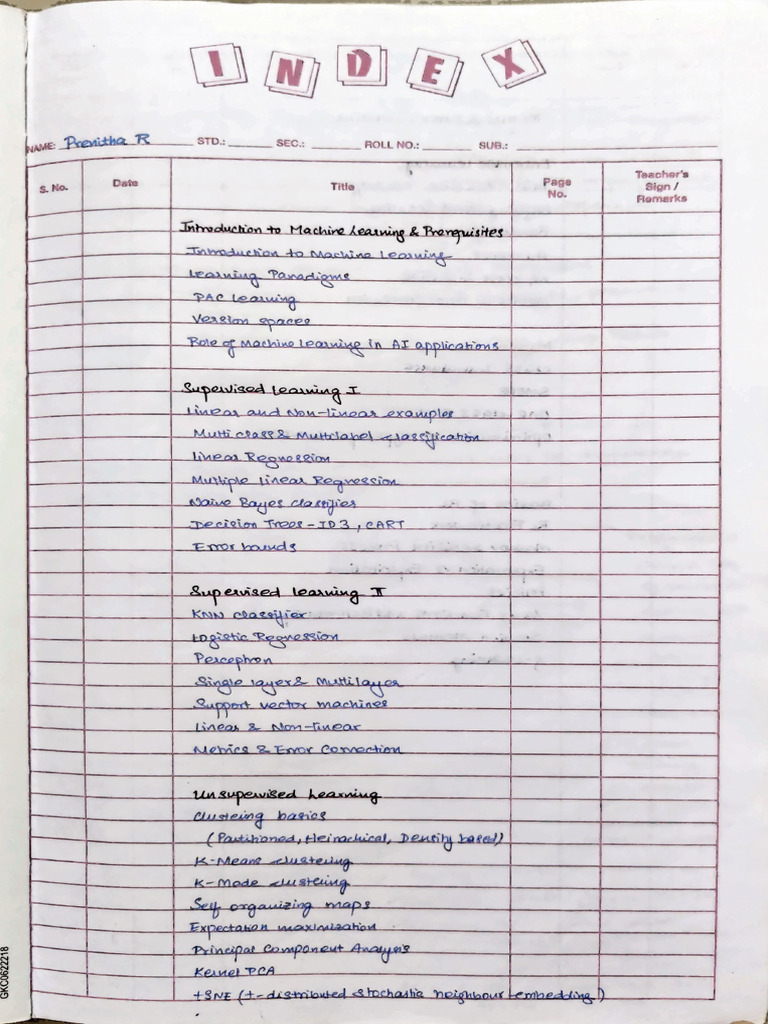 INDEX
NAME: Prenitha R STD.: SEC.: ROLL NO.: SUB.:
S. No. Date Title Page No. Teacher's Sign / Remarks
Introduction to Machine Learning & Prerequisites
Introduction to Machine Learning
Learning Paradigms
PAC Learning
Version spaces
Role of Machine Learning in AI applications
Supervised Learning I
Linear and Non-linear examples
Multi class & Multilabel classification
Linear Regression
Multiple Linear Regression
Naive Bayes classifier
Decision Trees - ID3, CART
Error bounds
Supervised Learning II
KNN classifier
Logistic Regression
Perceptron
Single layer & Multilayer
Support vector machines
Linear & Non-linear
Metrics & Error Correction
Unsupervised Learning
Clusteing basics
(Partitioned, Heirachical, Density based)
K-Means clustering
K-Mode clustering
Self organizing maps
Expectation maximization
Principal Component Analysis
Kernel PCA
tSNE (t-distributed stochastic neighbour embedding)
GKC0622218